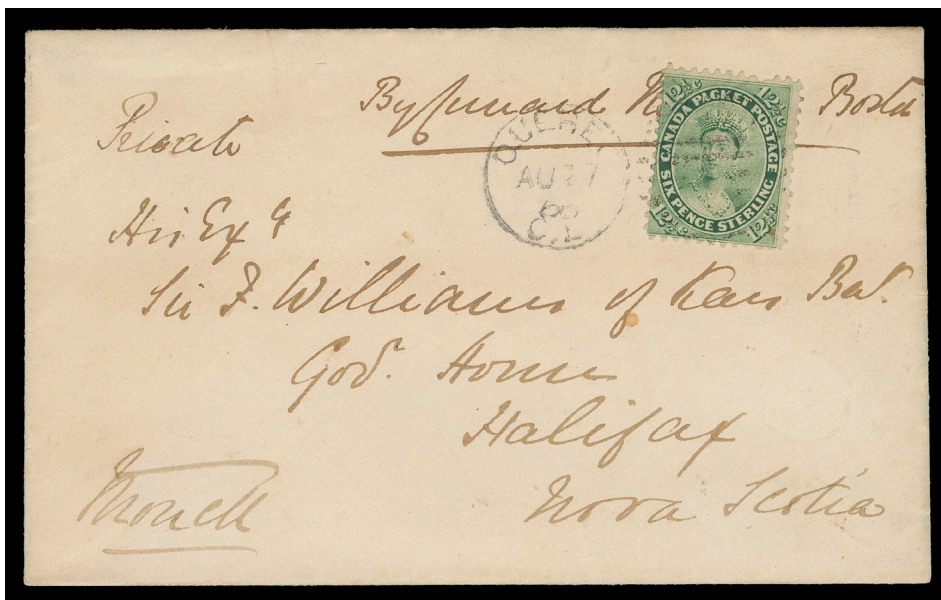 Private
By Cunard Boston
QUEBEC
AU 27
C.E.
12½c 12½c
CANADA PACKET POSTAGE
SIX PENCE STERLING
12½c 12½c
His Exy
Sir F. Williams of Kars Bat.
Govt. House
Halifax
Nova Scotia
Monck